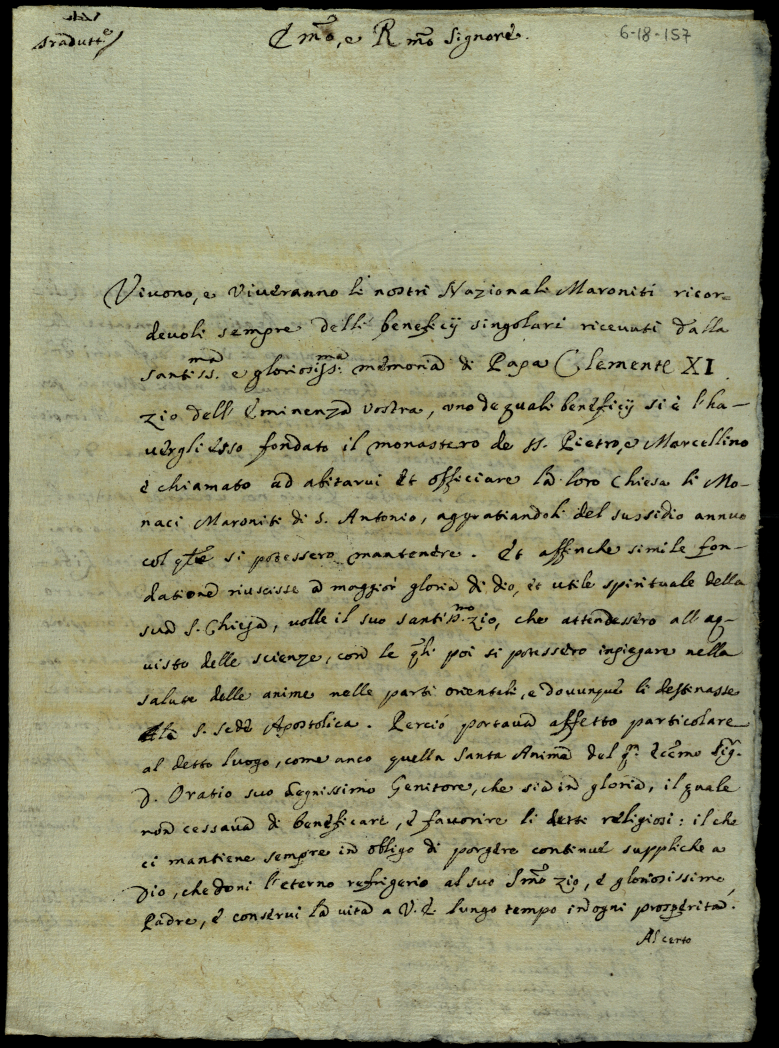 Tradutt.e
Em̃o, e Rm̃o Signore.
6-18-157
Vivono, e viveranno li nostri Nazionali Maroniti ricor=
devoli sempre delli beneficij singolari ricevuti dalla
santiss.ma e gloriosiss.ma memoria di Papa Clemente XI
zio dell' Eminenza vostra, uno de quali beneficij si è l'ha-
vergli esso fondato il monastero de SS. Pietro, e Marcellino
è chiamato ad abitarvi et officiare la loro Chiesa li Mo-
naci Maroniti di S. Antonio, aggratiandoli del sussidio annuo
col qt̃e si potessero mantenere. Et affinche simile fon-
datione riuscisse a maggior gloria di dio, et utile spirituale della
sua S. Chiesa, volle il suo santiss.mo zio, che attendessero all' aq-
uisto delle scienze, con le qli poi si potessero inpiegare nella
salute delle anime nelle parti orientali, e dovunque li destinasse
la S. Sede Apostolica. Perciò portava affetto particolare
al detto luogo, come anco quella santa Anima del q. Eccmo Sig.
D. Oratio suo degnissimo Genitore, che sia in gloria, il quale
non cessava di beneficare, è favorire li detti religiosi: il che
ci mantiene sempre in obligo di porgere continue suppliche a
Dio, che doni l'eterno refrigerio al suo Sm̃o zio, è gloriosissimo
Padre, è conservi la vita a V. E. lungo tempo in ogni prosperità.
Al certo